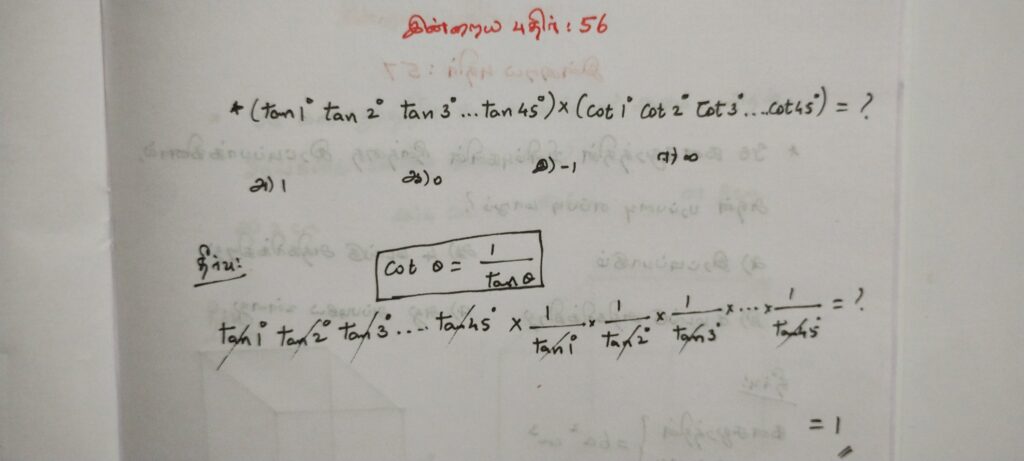 இன்றைய புதிர் : 56
* (tan 1° tan 2° tan 3° ... tan 45°) × (cot 1° cot 2° cot 3° .... cot 45°) = ?
அ) 1 ஆ) 0 இ) -1 ஈ) ∞
தீர்வு:
cot θ = 1/tan θ
tan 1° tan 2° tan 3° .... tan 45° × 1/tan 1° × 1/tan 2° × 1/tan 3° × ... × 1/tan 45° = ?
= 1